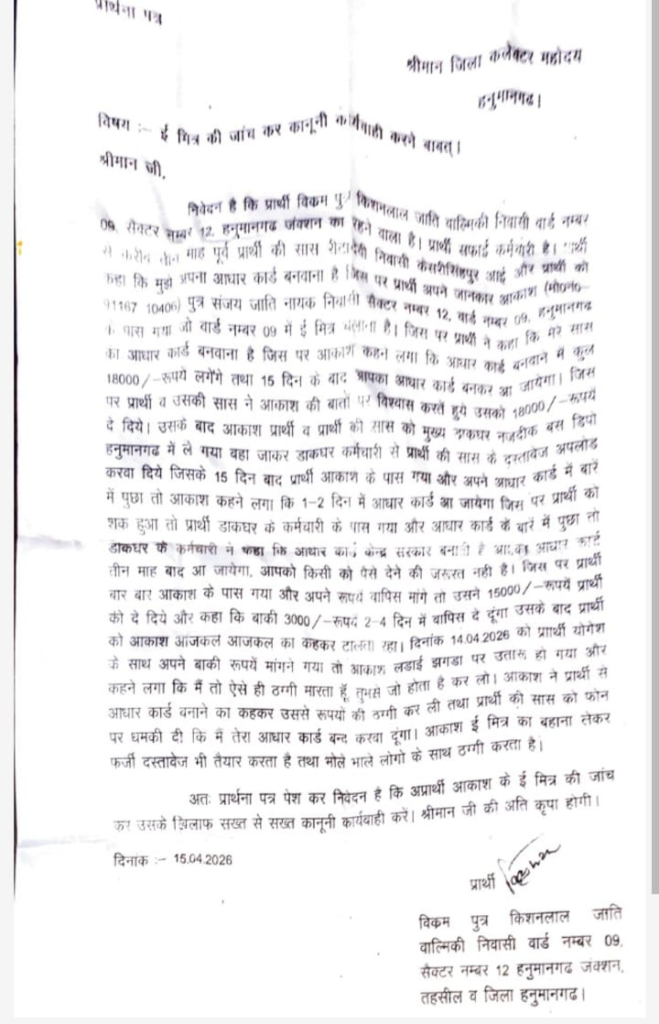 प्रार्थना पत्र
श्रीमान जिला कलेक्टर महोदय
हनुमानगढ।
विषय :- ई मित्र की जांच कर कानूनी कार्यवाही करने बाबत्।
श्रीमान जी,
निवेदन है कि प्रार्थी विक्रम पुत्र किशनलाल जाति वाल्मिकी निवासी वार्ड नम्बर
09, सैक्टर नम्बर 12, हनुमानगढ जंक्शन का रहने वाला है। प्रार्थी सफाई कर्मचारी है।
से करीब तीन माह पूर्व प्रार्थी की सास निवासी केसरीसिंहपुर आई और प्रार्थी को
कहा कि मुझे अपना आधार कार्ड बनवाना है जिस पर प्रार्थी अपने जानकार आकाश (मो0न0-
91167 10406) पुत्र संजय जाति नायक निवासी सैक्टर नम्बर 12, वार्ड नम्बर 09, हनुमानगढ
के पास गया जो वार्ड नम्बर 09 में ई मित्र चलाना है। जिस पर प्रार्थी ने कहा कि मेरे सास
का आधार कार्ड बनवाना है जिस पर आकाश कहन लगा कि आधार कार्ड बनवाने में कुल
18000/-रूपये लगेंगे तथा 15 दिन के बाद आपका आधार कार्ड बनकर आ जायेगा। जिस
पर प्रार्थी व उसकी सास ने आकाश की बातों पर विश्वास करते हुये उसको 18000/-रूपये
दे दिये। उसके बाद आकाश प्रार्थी व प्रार्थी की सास को मुख्य डाकघर नजदीक बस डिपो
हनुमानगढ में ले गया वहा जाकर डाकघर कर्मचारी से प्रार्थी की सास के दस्तावेज अपलोड
करवा दिये जिसके 15 दिन बाद प्रार्थी आकाश के पास गया और अपने आधार कार्ड में बारे
में पुछा तो आकाश कहने लगा कि 1-2 दिन में आधार कार्ड आ जायेगा जिस पर प्रार्थी को
शक हुआ तो प्रार्थी डाकघर के कर्मचारी के पास गया और आधार कार्ड के बारे में पुछा तो
डाकघर के कर्मचारी ने कहा कि आधार कार्ड केन्द्र सरकार बनाती है आपका आधार कार्ड
तीन माह बाद आ जायेगा, आपको किसी को पैसे देने की जरूरत नही है। जिस पर प्रार्थी
बार बार आकाश के पास गया और अपने रूपये वापिस मांगे तो उसने 15000/-रूपये प्रार्थी
को दे दिये और कहा कि बाकी 3000/-रूपये 2-4 दिन में वापिस दे दूंगा उसके बाद प्रार्थी
को आकाश आजकल आजकल का कहकर टालता रहा। दिनांक 14.04.2026 को प्रार्थी योगेश
के साथ अपने बाकी रूपयें मांगने गया तो आकाश लडाई झगडा पर उतारू हो गया और
कहने लगा कि मैं तो ऐसे ही ठग्गी मारता हूँ, तुमसे जो होता है कर लो। आकाश ने प्रार्थी से
आधार कार्ड बनाने का कहकर उससे रूपयो की ठग्गी कर ली तथा प्रार्थी की सास को फोन
पर धमकी दी कि मैं तेरा आधार कार्ड बन्द करवा दूंगा। आकाश ई मित्र का बहाना लेकर
फर्जी दस्तावेज भी तैयार करता है तथा भोले भाले लोगो के साथ ठग्गी करता है।
अतः प्रार्थना पत्र पेश कर निवेदन है कि अप्रार्थी आकाश के ई मित्र की जांच
कर उसके खिलाफ सख्त से सख्त कानूनी कार्यवाही करें। श्रीमान जी की अति कृपा होगी।
दिनांक :- 15.04.2026
प्रार्थी
विक्रम पुत्र किशनलाल जाति
वाल्मिकी निवासी वार्ड नम्बर 09,
सैक्टर नम्बर 12 हनुमानगढ जंक्शन,
तहसील व जिला हनुमानगढ।